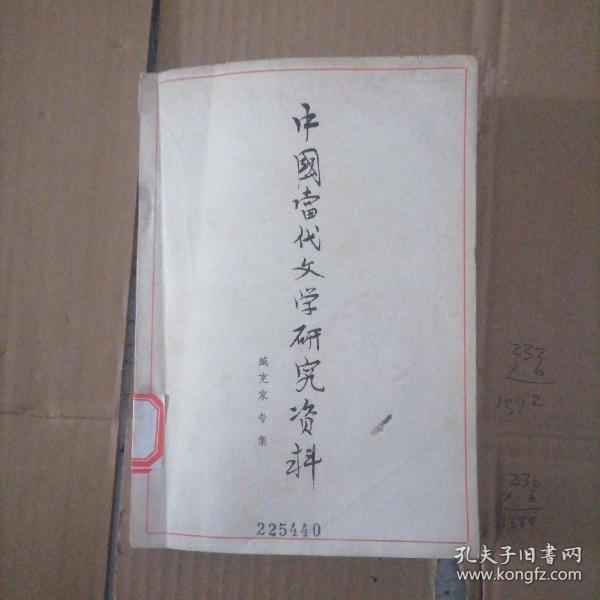 中國當代文学研究资料
臧克家专集
225440
232
× 6
1392
230
× 6
1380
孔夫子旧书网
www.kongfz.com